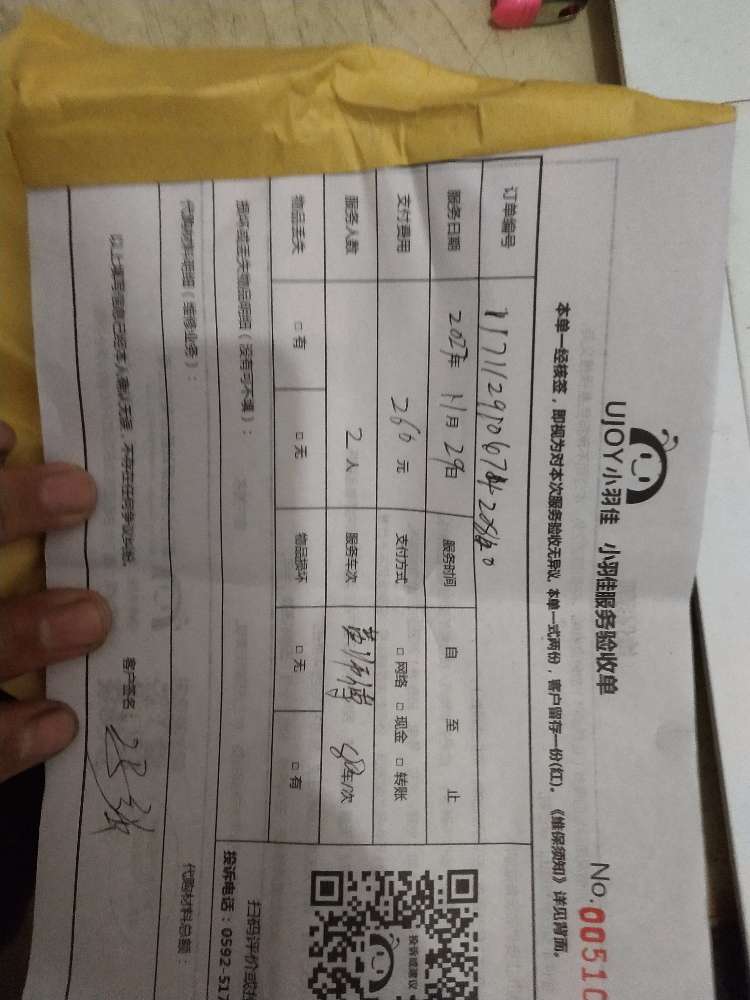 UJOY小羽佳 小羽佳服务验收单
No. 00510
本单一经核签，即视为对本次服务验收无异议，本单一式两份，客户留存一份(红)。《维保须知》详见背面。
订单编号
服务日期 2023年 11月 29日 服务时间 自 至 止
支付费用 260 元 支付方式 □ 网络 □ 现金 □ 转账
服务人数 2 人 服务车次 车/次
物品丢失 □ 有 □ 无 物品损坏 □ 无 □ 有
损坏或丢失物品明细（没有可不填）：
投诉或建议
扫码评价或
投诉电话：0592-517
代购材料明细（维修业务）： 代购材料总额：
以上填写信息已经本人确认无误，不存在任何争议纠纷。 客户签名：